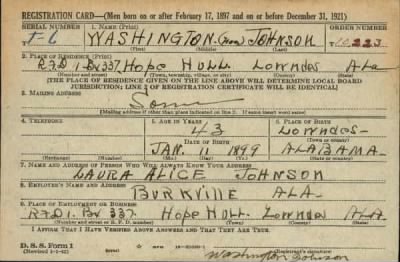 REGISTRATION CARD—(Men born on or after February 17, 1897 and on or before December 31, 1921)
SERIAL NUMBER 1. NAME (Print) ORDER NUMBER
WASHINGTON (none) JOHNSON
(First) (Middle) (Last)
2. PLACE OF RESIDENCE (Print)
R.F.D 1. Bx 337. Hope HULL Lowndes ALA
(Number and street) (Town, township, village, or city) (County) (State)
[THE PLACE OF RESIDENCE GIVEN ON THE LINE ABOVE WILL DETERMINE LOCAL BOARD
JURISDICTION; LINE 2 OF REGISTRATION CERTIFICATE WILL BE IDENTICAL]
3. MAILING ADDRESS
Same
[Mailing address if other than place indicated on line 2. If same insert word same]
4. TELEPHONE 5. AGE IN YEARS 6. PLACE OF BIRTH
43 Lowndes—
DATE OF BIRTH (Town or county)
JAN. 11 1899 ALABAMA
(Exchange) (Number) (Mo.) (Day) (Yr.) (State or country)
7. NAME AND ADDRESS OF PERSON WHO WILL ALWAYS KNOW YOUR ADDRESS
LAURA ALICE JOHNSON
8. EMPLOYER'S NAME AND ADDRESS
BURKVILLE ALA.
9. PLACE OF EMPLOYMENT OR BUSINESS
R.F.D 1. Bx 337. Hope HULL. Lowndes ALA.
(Number and street or R. F. D. number) (Town) (County) (State)
I AFFIRM THAT I HAVE VERIFIED ABOVE ANSWERS AND THAT THEY ARE TRUE.
D. S. S. Form 1
Washington Johnson
(Registrant's signature)